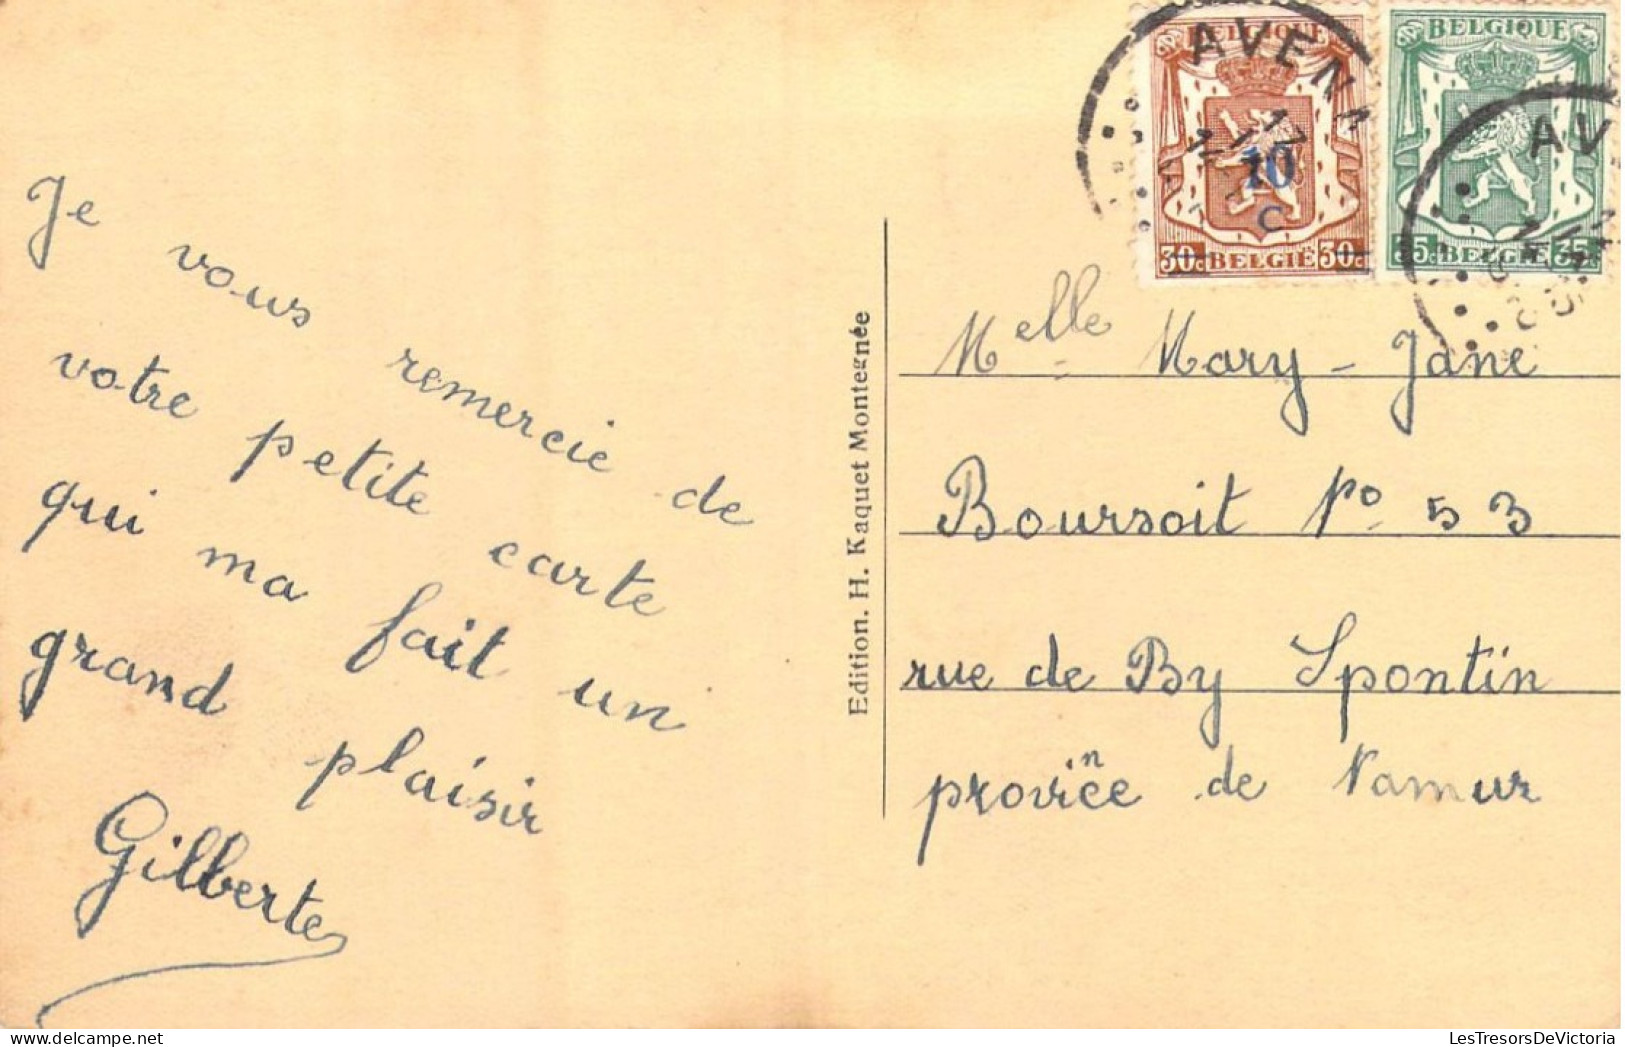 Je vous remercie de
votre petite carte
qui ma fait un
grand plaisir
Gilberte
Edition. H. Kaquet Montegnée
BELGIQUE
10
c
30c BELGIË 30c
BELGIQUE
35c BELGIË 35c
AVENN
AV
Melle Mary-Jane
Boursoit No 53
rue de By Spontin
province de Namur
LesTresorsDeVictoria.com